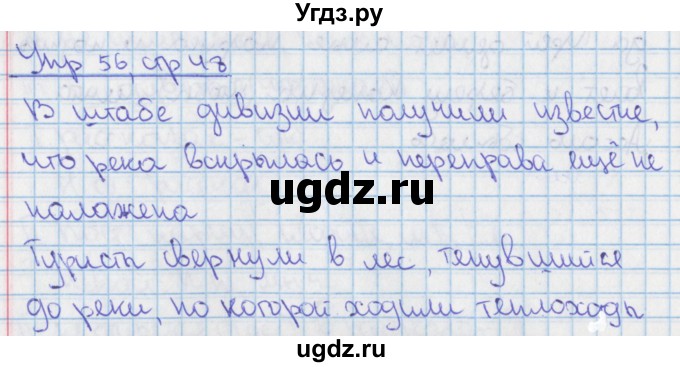 Угдз.ру
Упр 56, стр 48
В штабе дивизии получили известие,
что река вскрылась и переправа ещё не
ugdz.ru
налажена
Туристы свернули в лес, тянувшийся
до реки, по которой ходили теплоходы
ugdz.ru